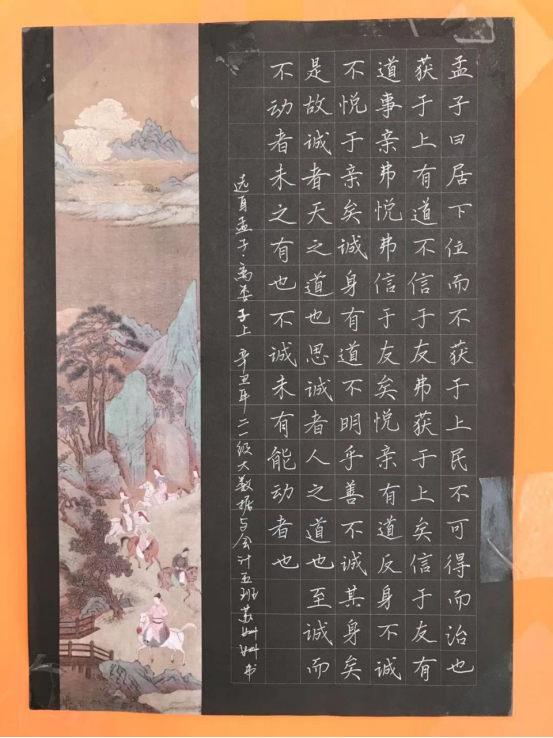 孟子曰居下位而不获于上民不可得而治也
获于上有道不信于友弗获于上矣信于友有
道事亲弗悦弗信于友矣悦亲有道反身不诚
不悦于亲矣诚身有道不明乎善不诚其身矣
是故诚者天之道也思诚者人之道也至诚而
不动者未之有也不诚未有能动者也
选自孟子·离娄子上 辛丑年 二一级大数据与会计五班 书